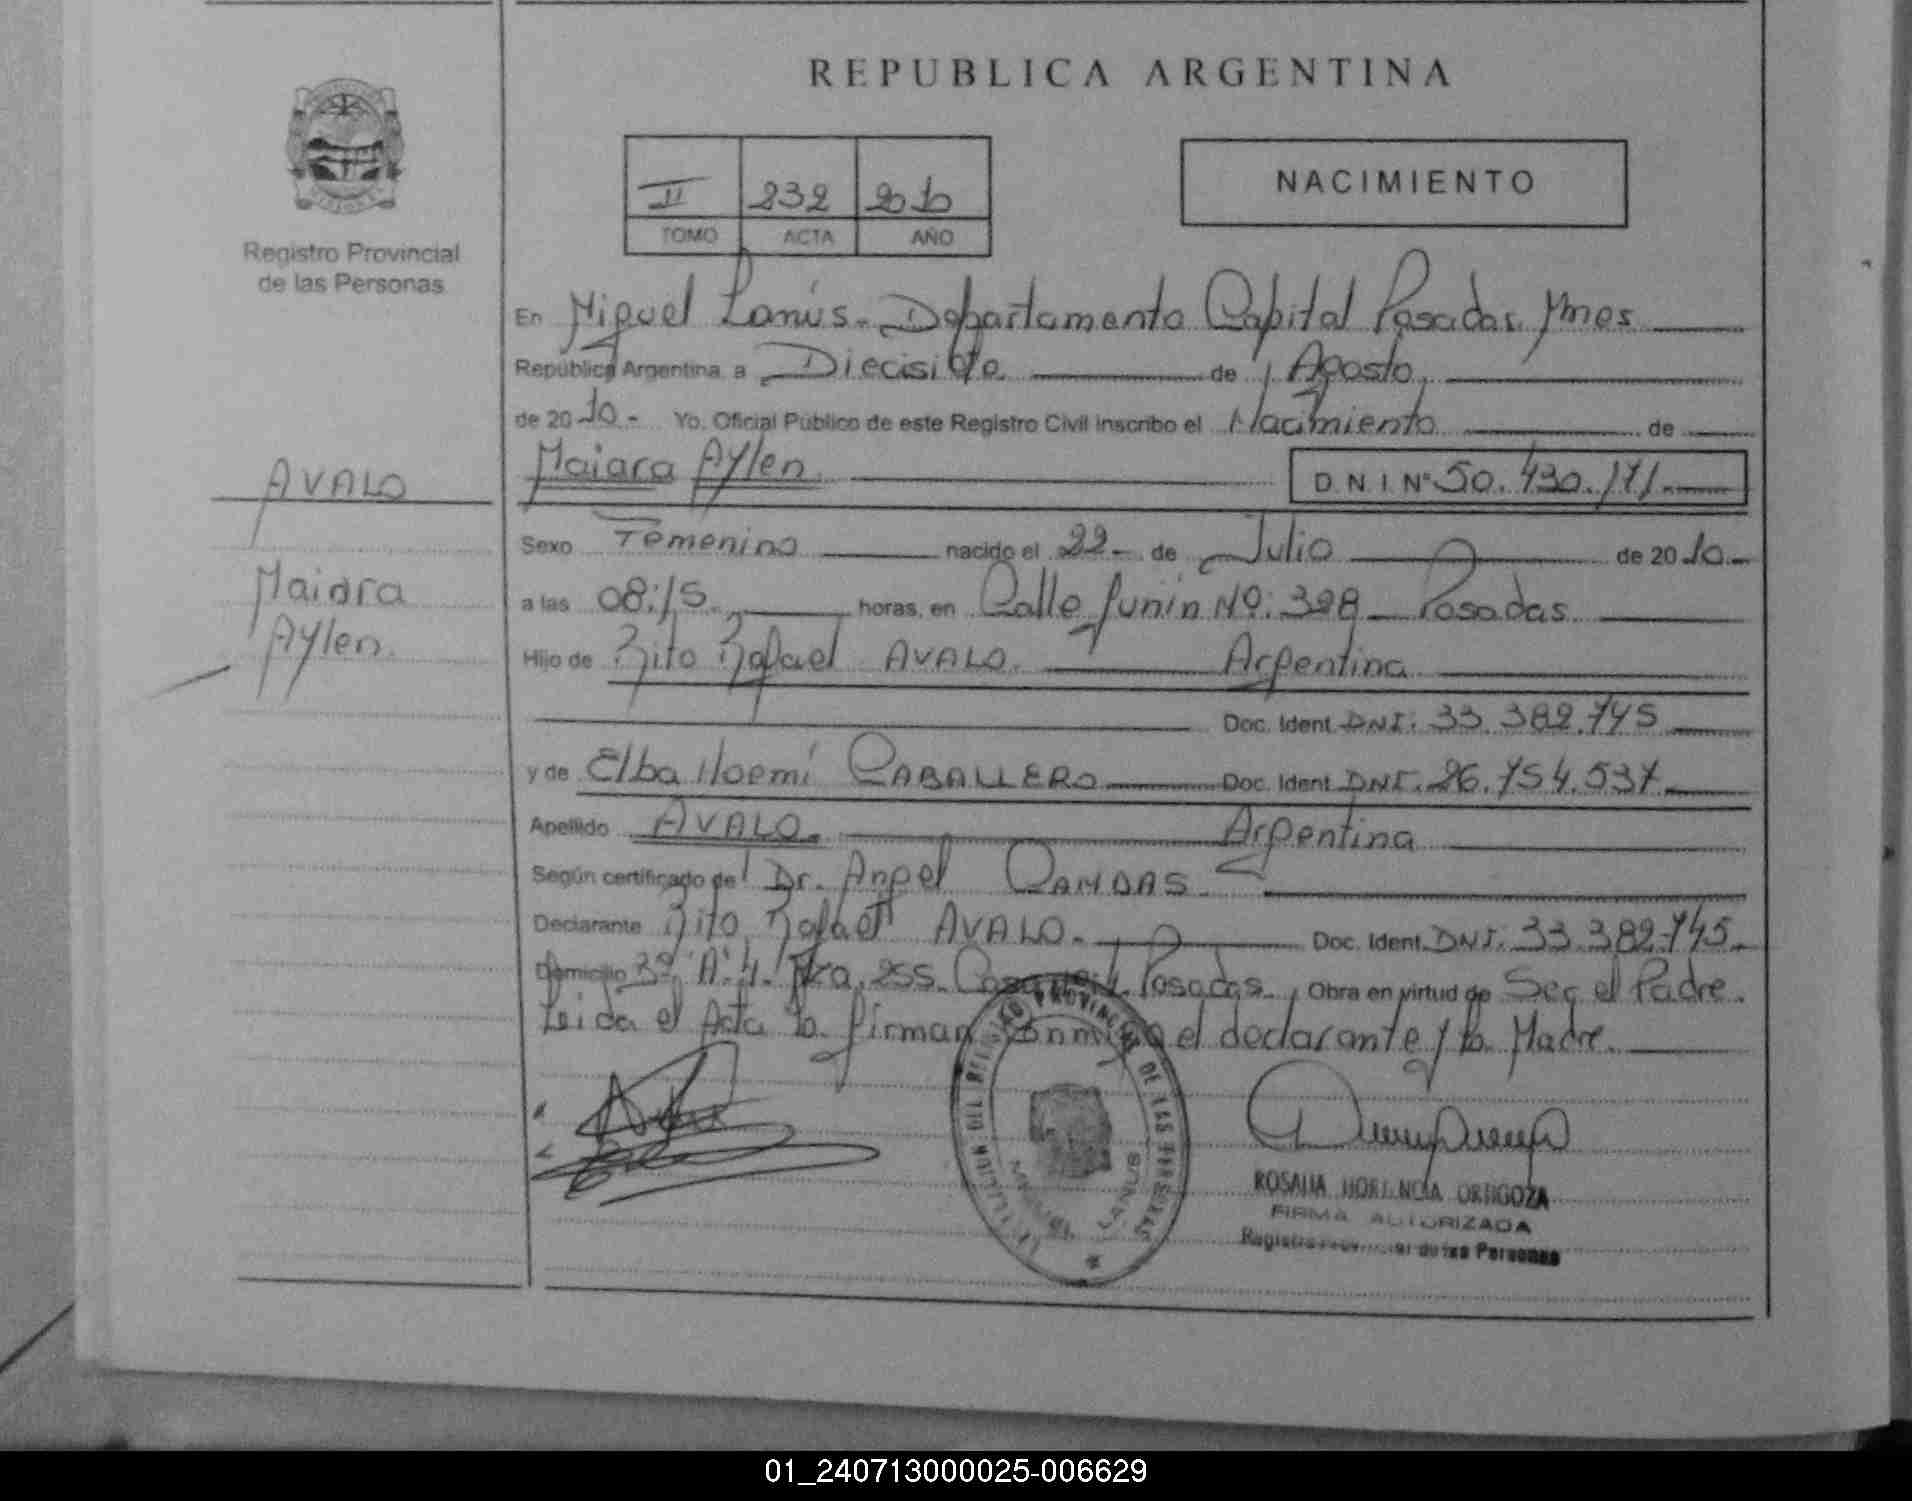 REPUBLICA ARGENTINA
NACIMIENTO
II 232 2010
TOMO ACTA AÑO
Registro Provincial
de las Personas
En Miguel Lanús - Departamento Capital Posadas Mnes
República Argentina a Diecisiete de Agosto
de 2010.- Yo. Oficial Público de este Registro Civil inscribo el Nacimiento de
AVALO
Maiara Aylen
D.N.I. Nº 50.430.171.-
Sexo Femenino nacido el 22 - de Julio de 2010.-
Maiara
Aylen.
a las 08:15 horas, en Calle Junín Nº: 398 - Posadas
Hijo de Rito Rafael AVALO. Argentina
Doc. Ident. DNI: 33.382.745
y de Elba Noemí CABALLERO Doc. Ident. DNI. 26.754.537.
Apellido AVALO. Argentina
Según certificado de Dr. Angel
Declarante Rito Rafael AVALO. Doc. Ident. DNI: 33.382.745.
Domicilio 255. Casa Posadas. Obra en virtud de Ser el Padre.
Leída el Acta la firman conmigo el declarante y la Madre.
PROVINCIAL DE LAS PERSONAS
LANUS
ROSALIA HORTENCIA ORTIGOZA
FIRMA AUTORIZADA
Registro de las Personas
01_240713000025-006629